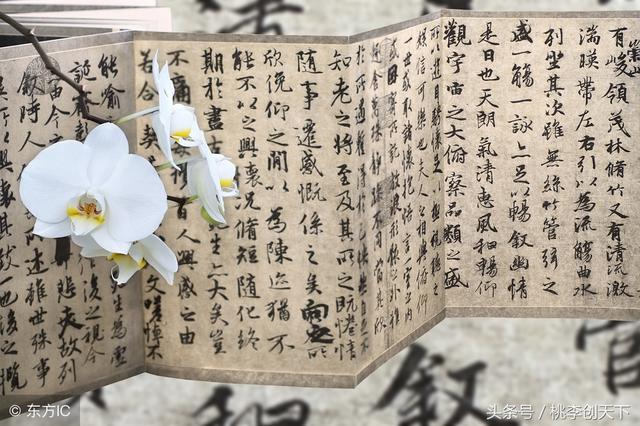 有崇峻領茂林脩竹又有清流激
湍暎帶左右引以為流觴曲水
列坐其次雖無絲竹管弦之
盛一觴一詠亦足以暢敘幽情
是日也天朗氣清惠風和暢仰
觀宇宙之大俯察品類之盛
以遊目騁懷足以極視聽之
娛信可樂也夫人之相與俯仰
一世或取諸懷抱悟言一室之內
或因寄所託放浪形骸之外雖
趣舍萬殊靜躁不同當其欣
於所遇暫得於己怏然自足不
知老之將至及其所之既惓情
隨事遷感慨係之矣向之
欣俛仰之間以為陳迹猶不
能不以之興懷況脩短隨化終
期於盡古生亦大矣豈
不痛興感之由
若合一契文嗟悼不
能喻生為虛
誕後之視今
由今悲夫故列
敘時人述雖世殊事
以興懷其致一也後之攬
© 东方IC
头条号 / 桃李创天下